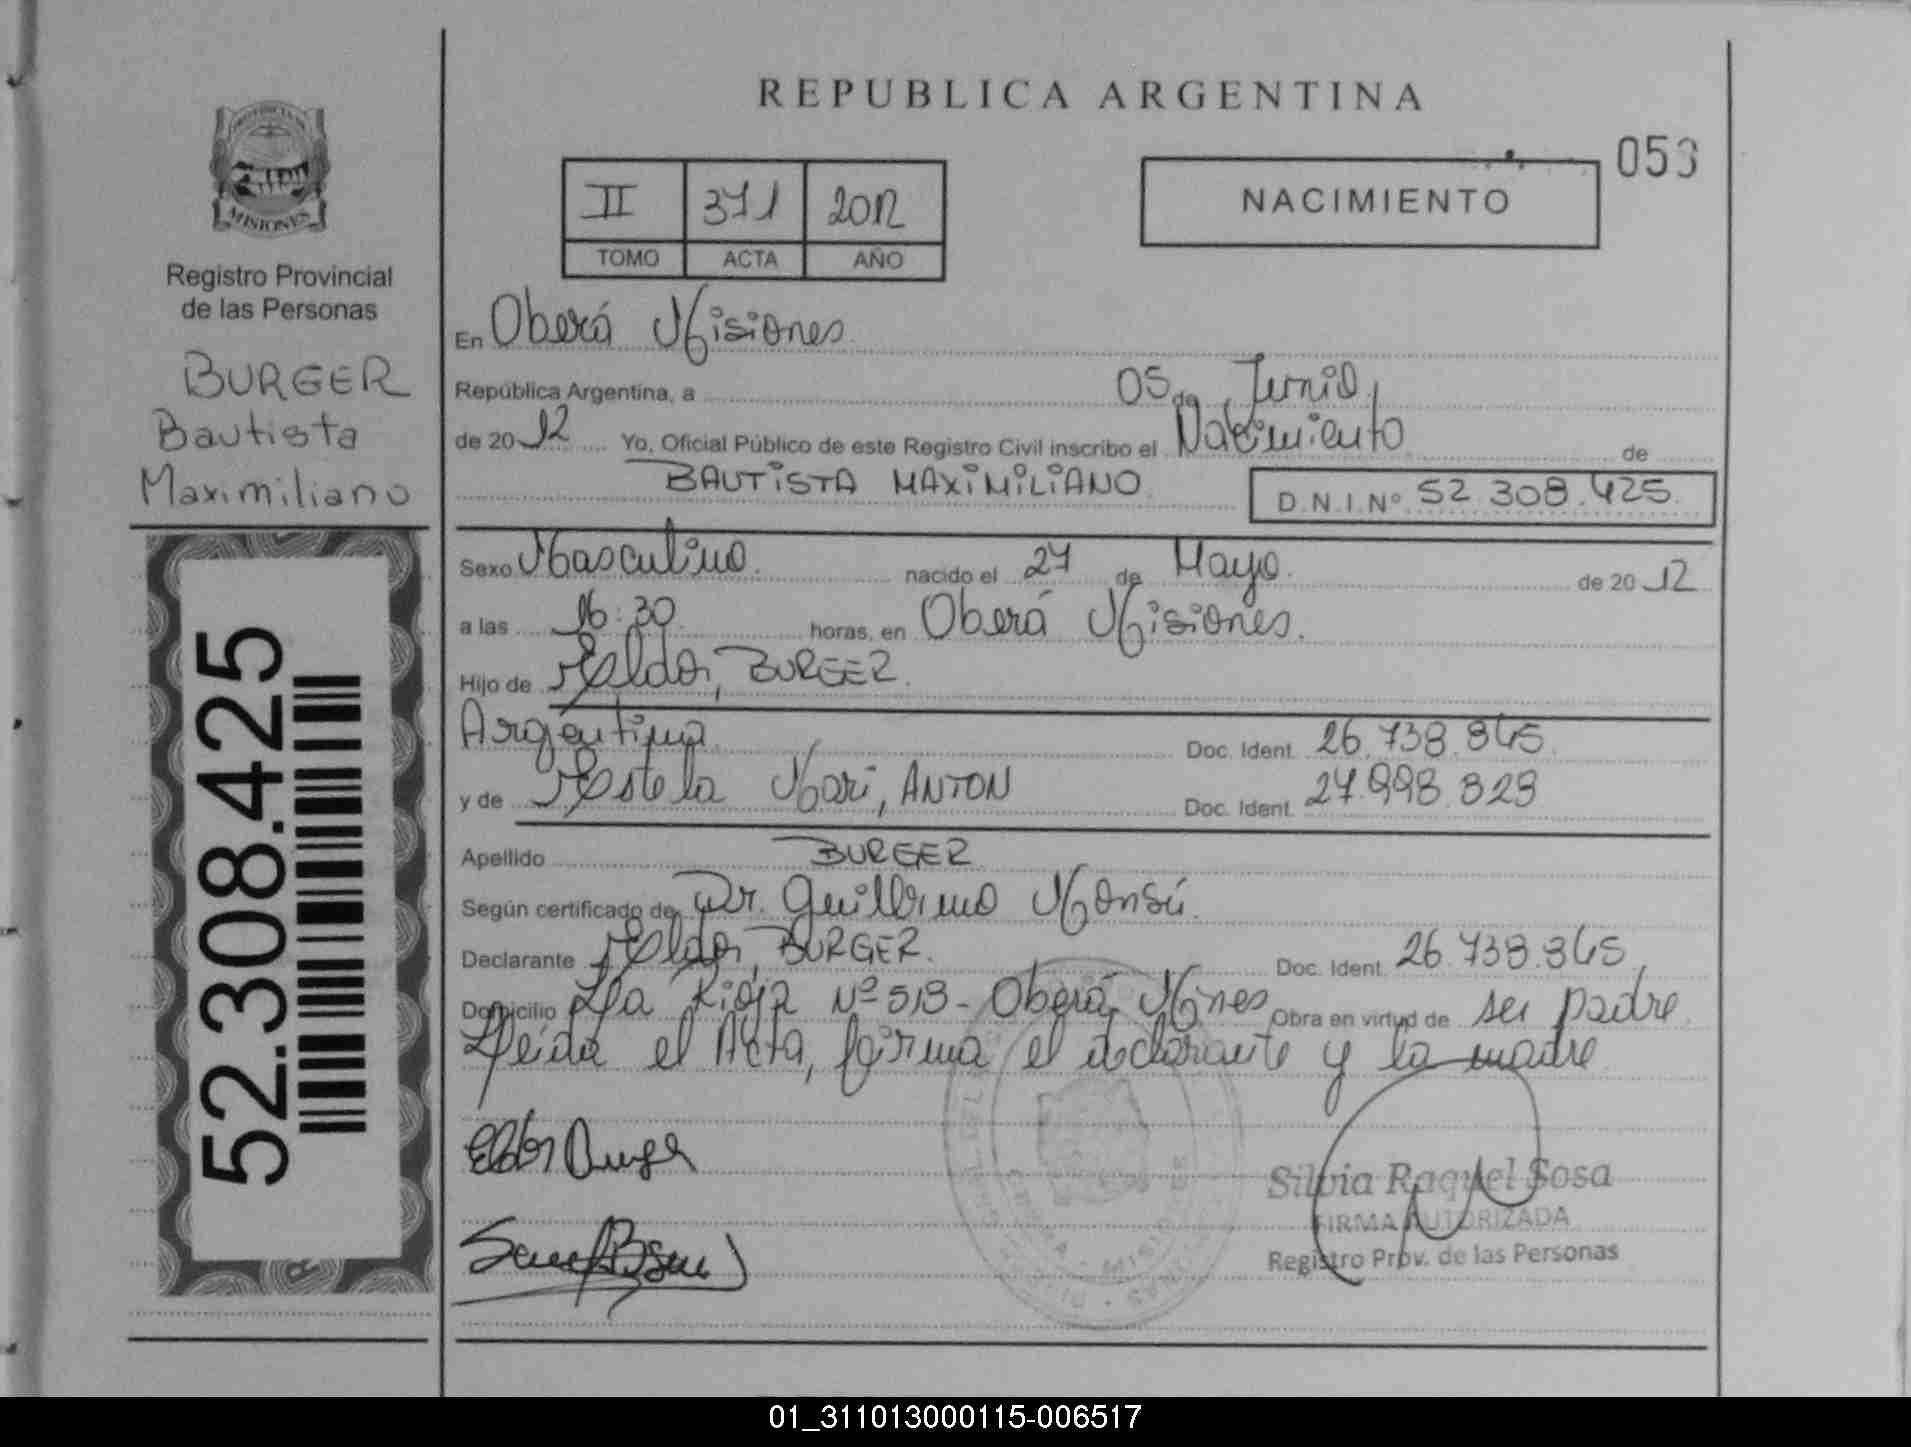 REPUBLICA ARGENTINA
053
PROVINCIA DE
MISIONES
Registro Provincial
de las Personas
BURGER
Bautista
Maximiliano
52.308.425
II 371 2012
TOMO ACTA AÑO
NACIMIENTO
En Oberá Misiones
República Argentina, a 05 de Junio,
de 2012 Yo, Oficial Público de este Registro Civil inscribo el Nacimiento de
BAUTISTA MAXIMILIANO D.N.I.Nº 52.308.425.
Sexo Masculino. nacido el 27 de Mayo. de 2012
a las 16:30 horas, en Oberá Misiones.
Hijo de Eldor, BURGER.
Argentina Doc. Ident. 26.738.865.
y de Estela Mari, ANTON Doc. Ident. 27.998.828
Apellido BURGER
Según certificado de Dr. Guillermo Monsú.
Declarante Eldor, BURGER. Doc. Ident. 26.738.865,
Domicilio La Rioja Nº 513 - Oberá, Mnes Obra en virtud de ser padre
Leída el Acta, firma el declarante y la madre
Eldor Burger
Silvia Raquel Sosa
FIRMA AUTORIZADA
Registro Prov. de las Personas
01_311013000115-006517